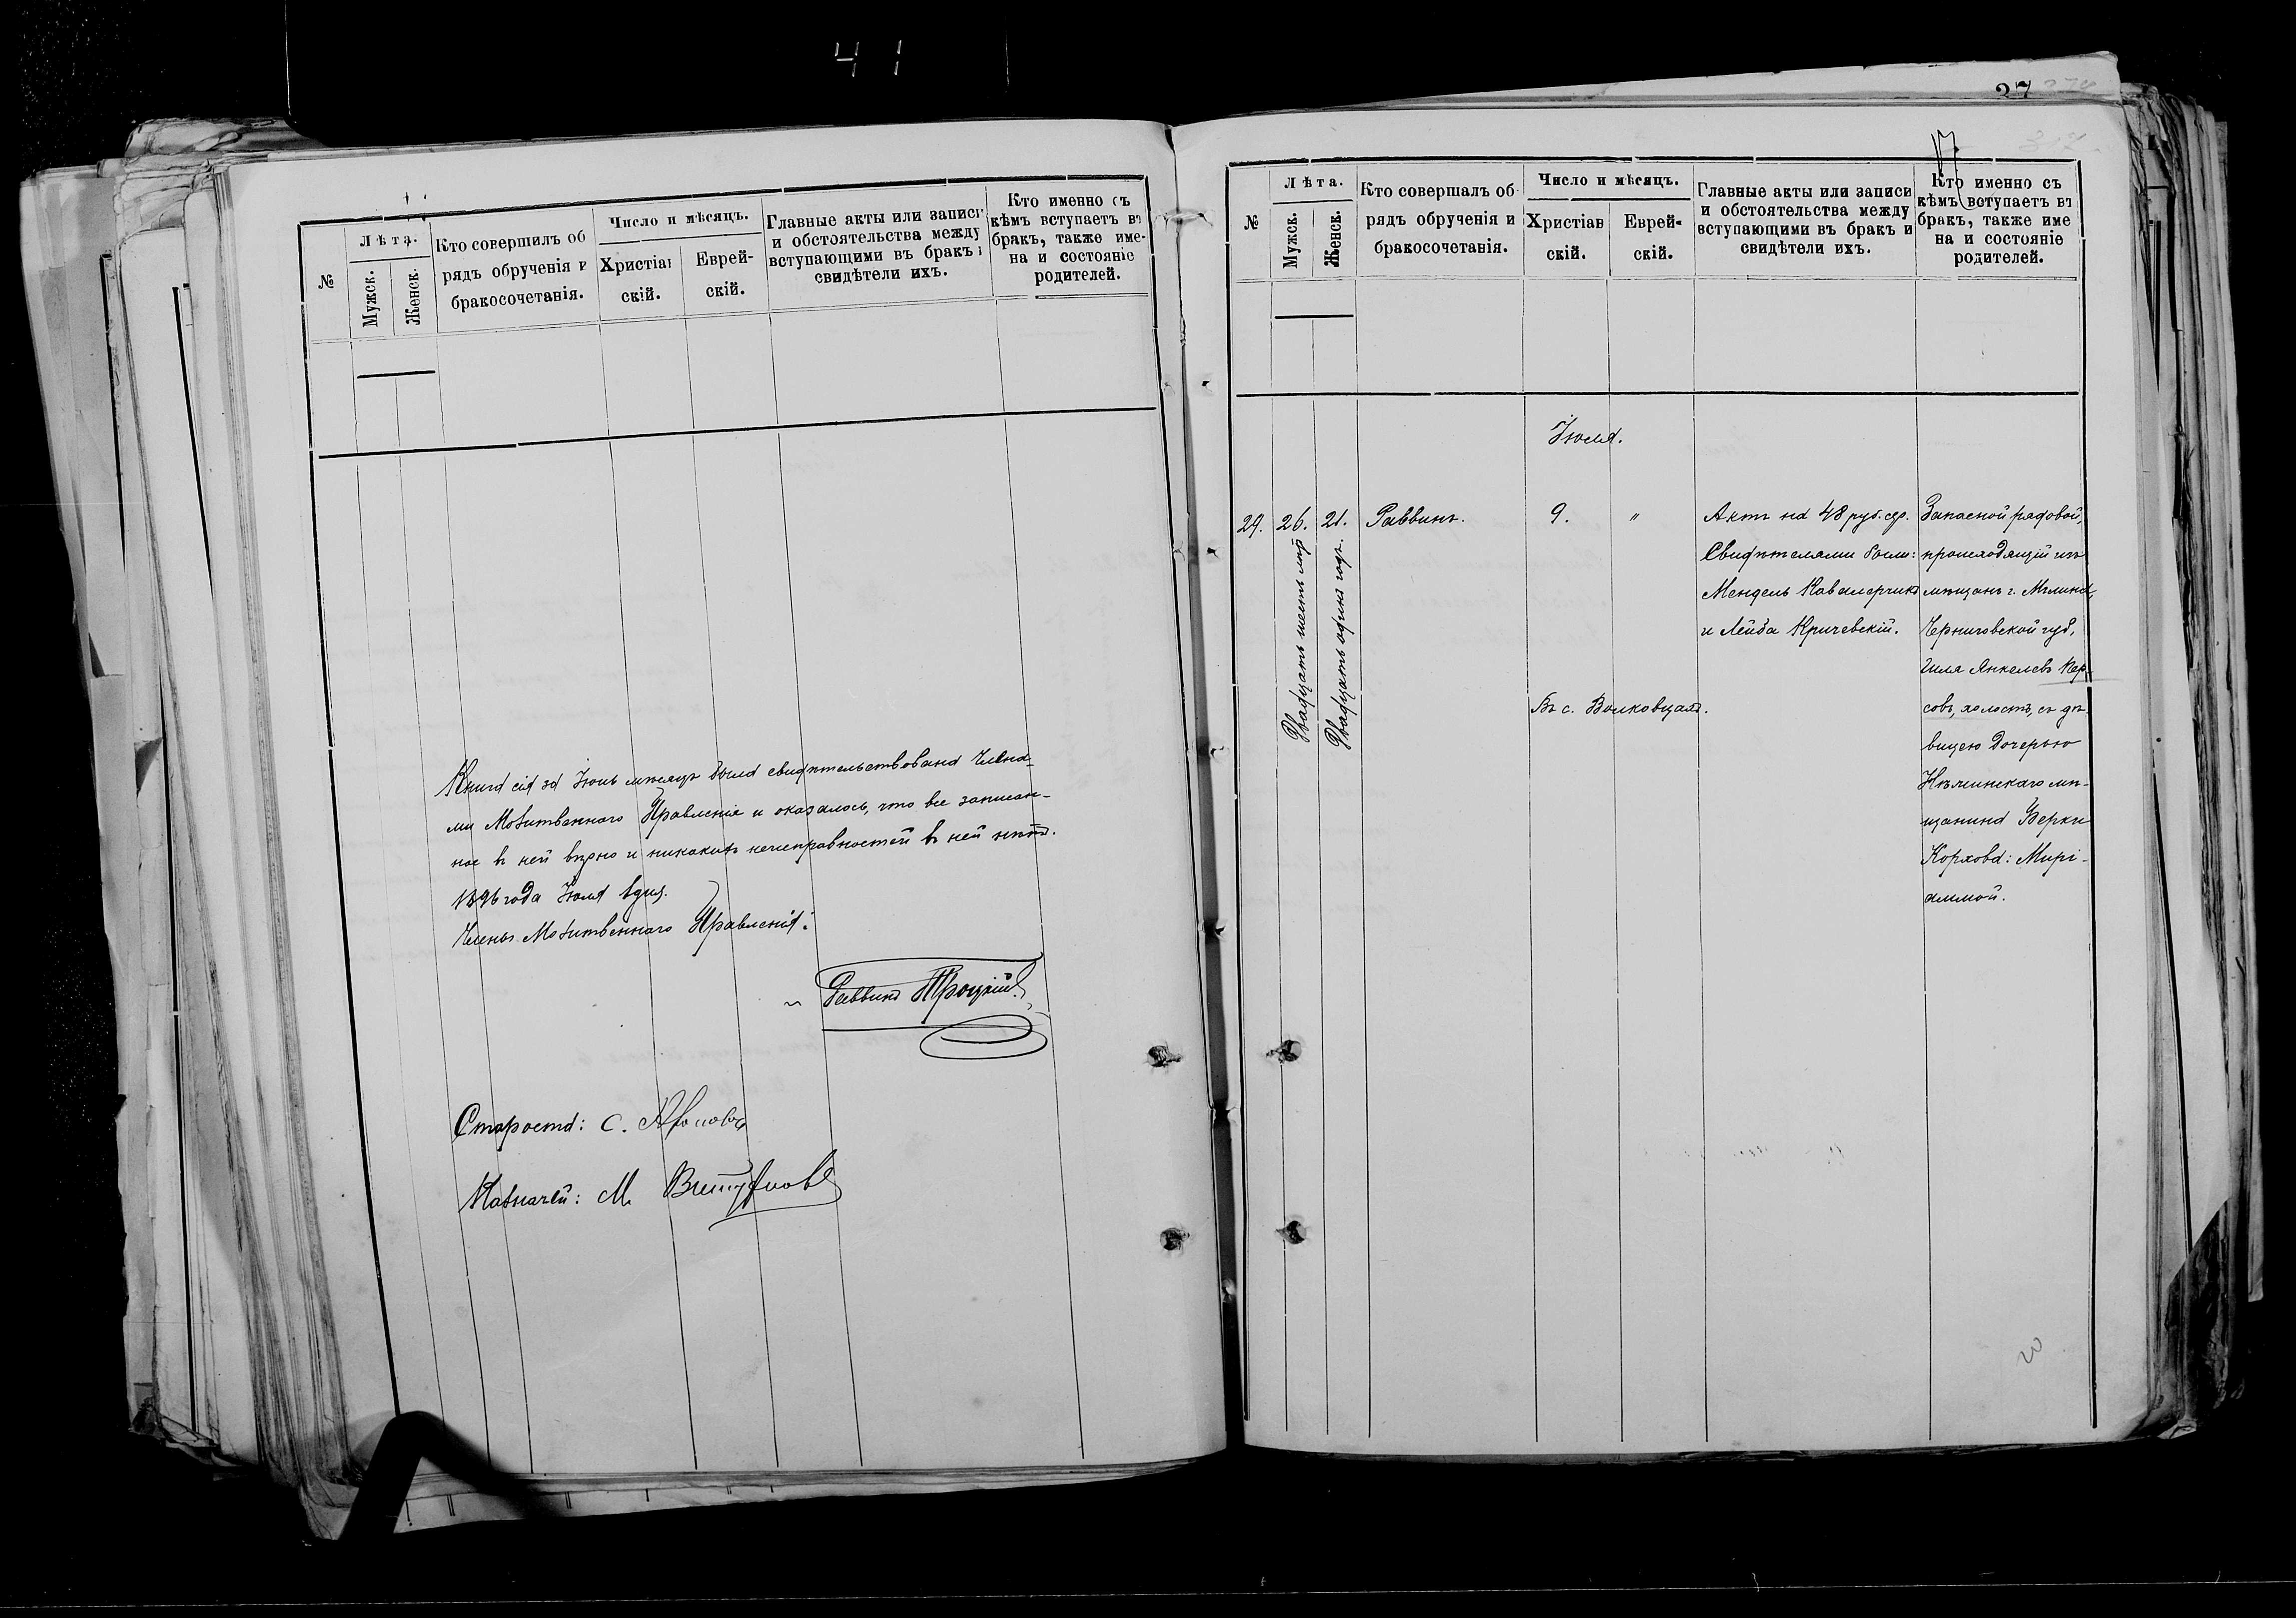 41
№
Лѣта.
Мужск.
Женск.
Кто совершилъ об
рядъ обрученія и
бракосочетанія.
Число и мѣсяцъ.
Христіан
скій.
Еврей-
скій.
Главные акты или записи
и обстоятельства между
вступающими въ бракъ и
свидѣтели ихъ.
Кто именно съ
кѣмъ вступаетъ въ
бракъ, также име-
на и состояніе
родителей.
Книга сія за Іюнь мѣсяцъ была свидѣтельствована Члена-
ми Молитвеннаго Правленія и оказалось, что все записан-
ное въ ней вѣрно и никакихъ неисправностей въ ней нѣтъ.
1896 года Іюля 1 дня.
Члены Молитвеннаго Правленія:
Раввинъ Троцкій.
Староста: С.
Казначей: М.
37
17
№
Лѣта.
Мужск.
Женск.
Кто совершалъ об
рядъ обрученія и
бракосочетанія.
Число и мѣсяцъ.
Христіан
скій.
Еврей-
скій.
Главные акты или записи
и обстоятельства между
вступающими въ бракъ и
свидѣтели ихъ.
Кто именно съ
кѣмъ вступаетъ въ
бракъ, также име
на и состояніе
родителей.
Іюля.
29.
26.
Двадцать шесть лѣтъ
21.
Двадцать одинъ годъ.
Раввинъ.
9.
"
Въ с. Волковцахъ.
Актъ на 48 руб. сер.
Свидѣтелями были:
Мендель Кавалерчикъ
и Лейба Кричевскій.
Запасной рядовой,
происходящій изъ
мѣщанъ г. Мглина,
Черниговской губ.,
Гиля Янкелевъ Кер-
совъ, холостъ, съ дѣ-
вицею дочерью
Нѣжинскаго мѣ-
щанина Берки
Корхова: Мирі-
аммой.